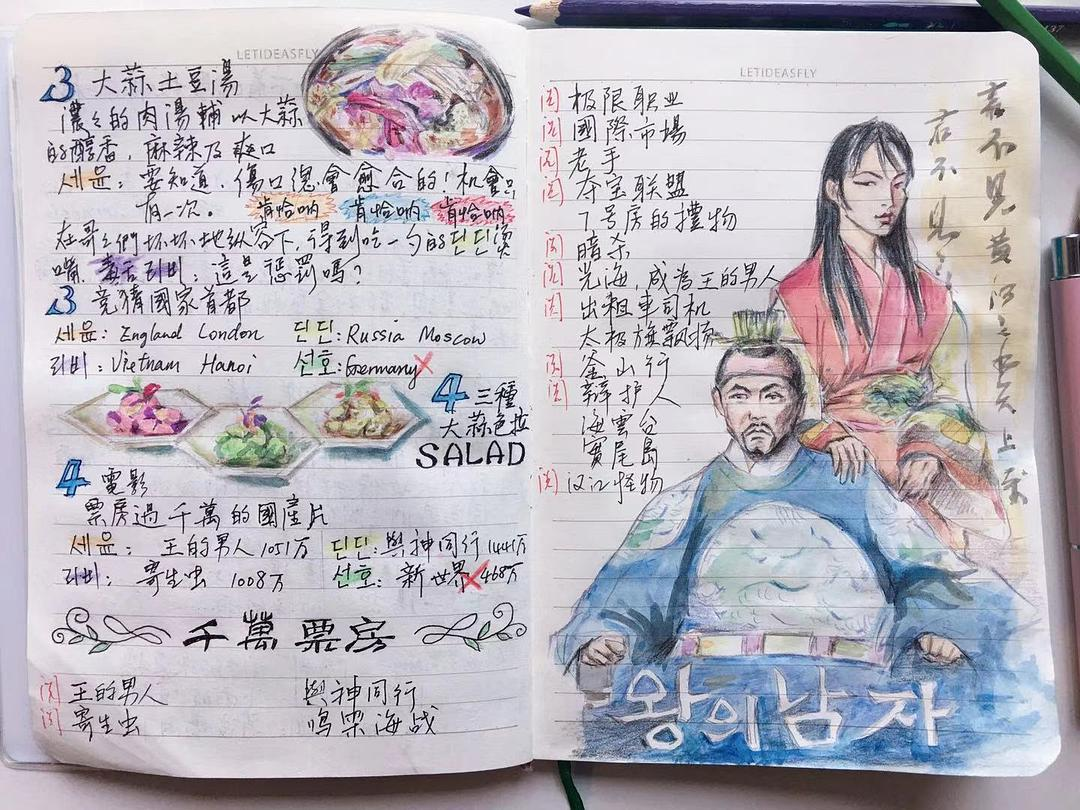 LETIDEASFLY
3 大蒜土豆湯
濃々的肉湯輔以大蒜
的醇香，麻辣及爽口
세윤：要知道，傷口總會愈合的！机會只
有一次。 肯恰呐 肯恰呐 肯恰呐
在哥々們坏坏地纵容下，得到吃一勺的딘딘燙
嘴 리비：這是惩罰嗎？
3 竞猜國家首都
세윤：England London 딘딘：Russia Moscow
리비：Vietnam Hanoi 선호：Germany
4 三種
大蒜色拉
SALAD
4 電影
票房過千萬的國產片
세윤：王的男人1051万 딘딘：與神同行1441万
리비：寄生虫 1008万 선호：新世界468万
千萬票房
王的男人 與神同行
寄生虫 鸣梁海战
LETIDEASFLY
阅 极限职业
阅 國際市場
阅 老手
阅 夺宝联盟
7号房的禮物
阅 暗杀
阅 光海，成為王的男人
阅 出租車司机
太极旗飘扬
阅 釜山行
阅 辩护人
海雲台
實尾島
阅 汉江怪物
君不見黄河之水天上来
君不見
왕의 남자